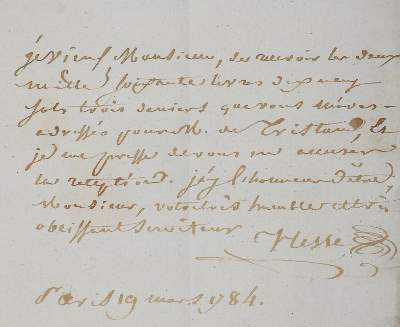 je viens Monsieur, de recevoir les deux
mille soixante livres dix neuf
sols trois deniers que vous m'avés
adressés pour M. de Tristan, Et
je me presse de vous en accuser
la reception. j'ay l'honneur d'être,
Monsieur, votre très humble et très
obeissant serviteur
Paris 19 mars 1784.